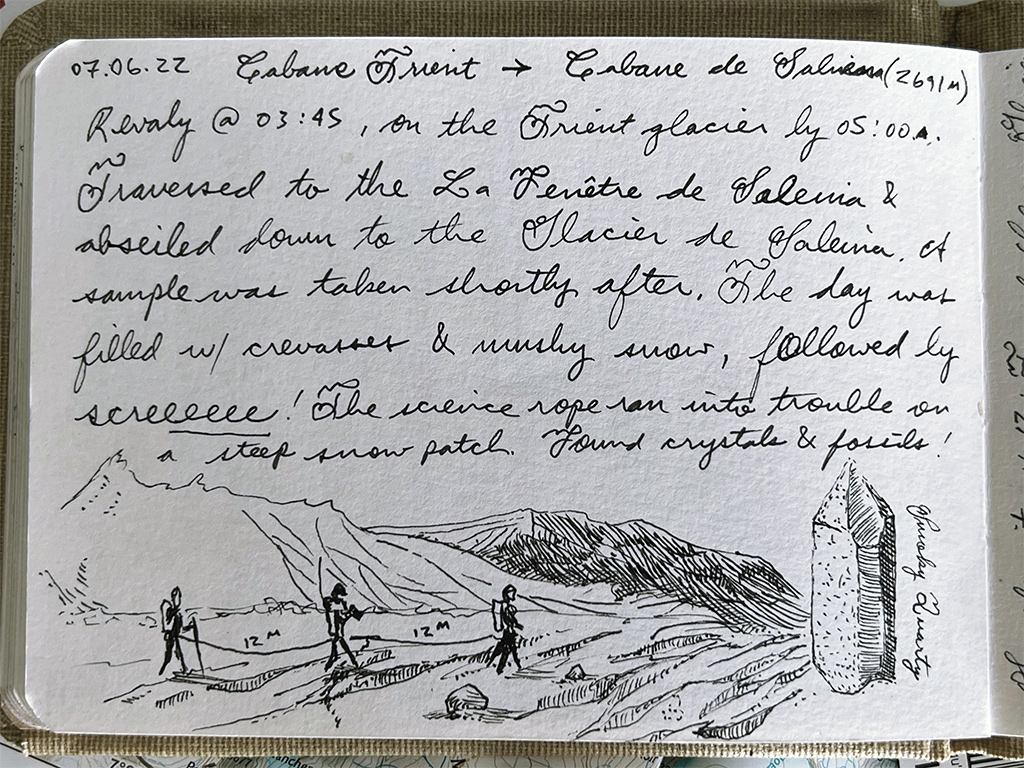 07.06.22 Cabane Trient → Cabane de Saleina (2691M)
Revaly @ 03:45, on the Trient glacier by 05:00.
Traversed to the La Fenêtre de Saleina &
abseiled down to the Glacier de Saleina. A
sample was taken shortly after. The day was
filled w/ crevasses & mushy snow, followed by
screeeeee! The science rope ran into trouble on
a steep snow patch. Found crystals & fossils!
12 M
12 M
Smoky Quartz